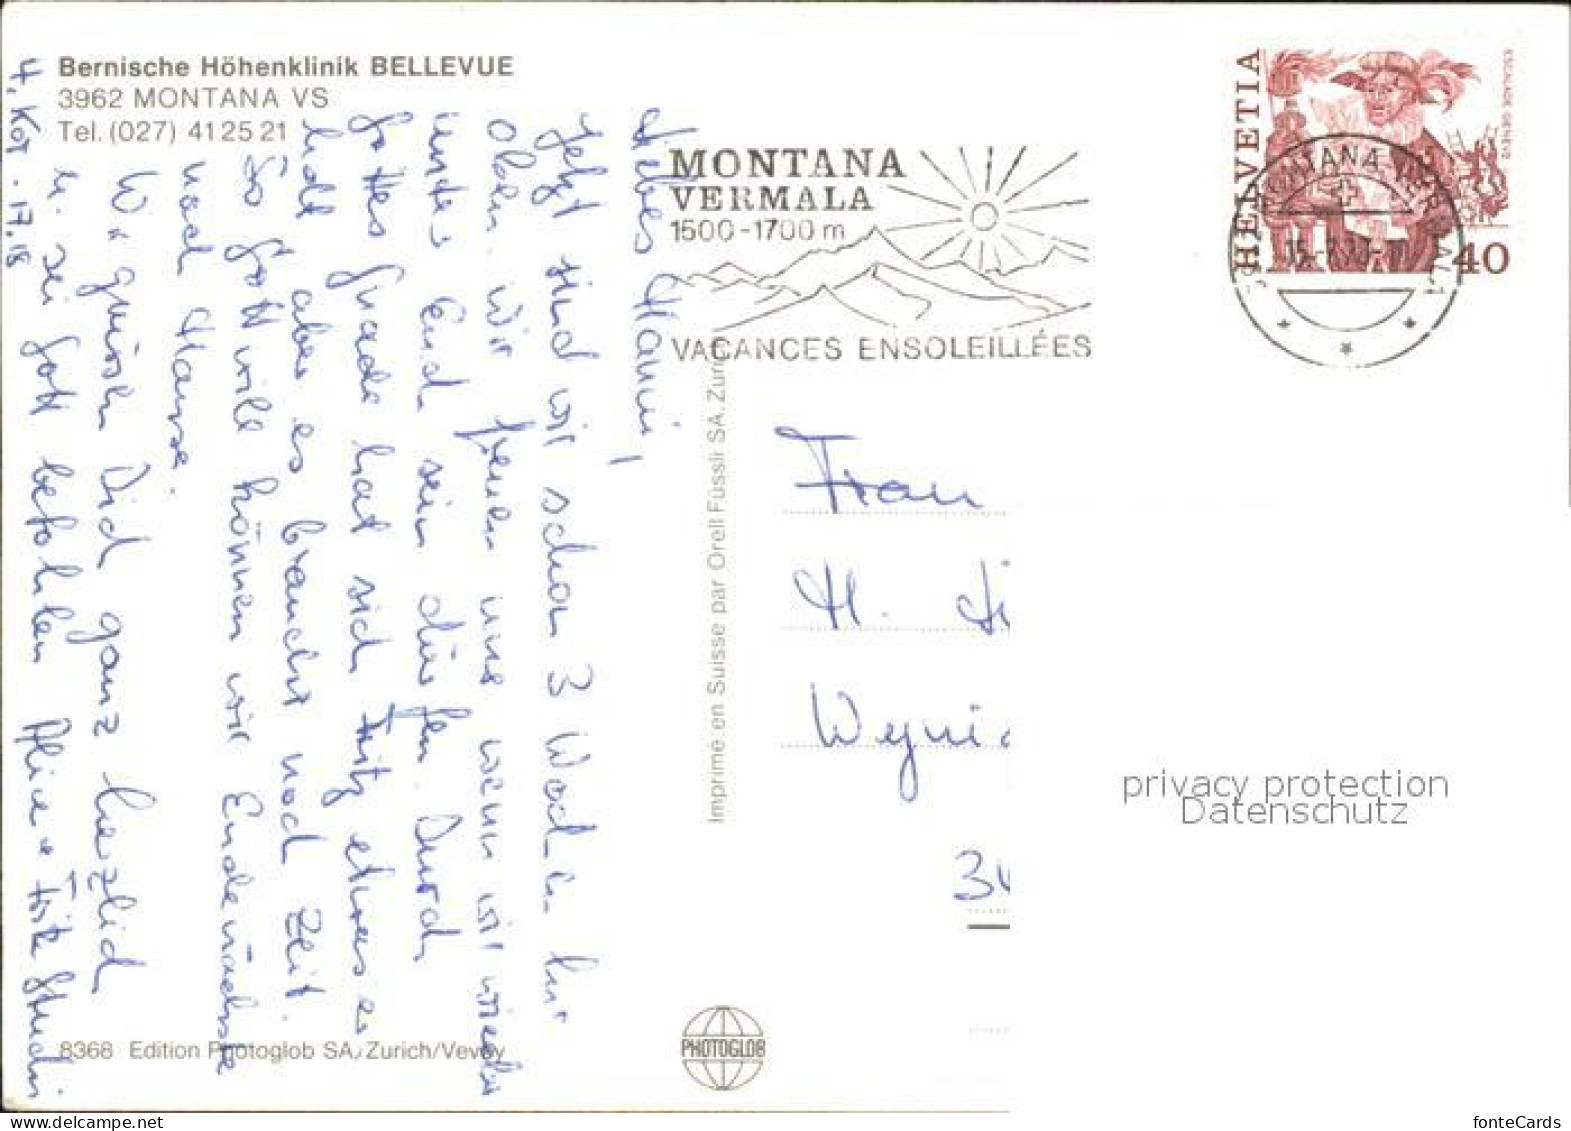 Bernische Höhenklinik BELLEVUE
3962 MONTANA VS
Tel. (027) 41 25 21
Liebes Hanni,
Jetzt sind wir schon 3 Wochen hier
oben. Wir freuen uns wenn wir wieder
unter Euch sein dürfen. Durch
Gottes Gnade hat sich Fritz etwas er
holt aber es braucht noch Zeit.
So Gott will können wir Ende nächste
noch Hause.
Wir grüssen Dich ganz herzlich
u. sei Gott befohlen Alice u. Fritz
4. Kor. 17.18
8368 Edition Photoglob SA, Zurich/Vevey
Imprimé en Suisse par Orell Füssli SA, Zurich
PHOTOGLOB
MONTANA
VERMALA
1500-1700 m
VACANCES ENSOLEILLÉES
HELVETIA
ESCALADE GENÈVE
40
MONTANA-VERMALA
Frau
H.
3
privacy protection
Datenschutz
fonteCards